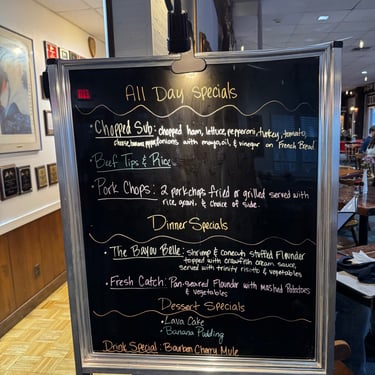 All Day Specials
• Chopped Sub: chopped ham, lettuce, pepperoni, turkey, tomato,
cheese, banana peppers, onions with mayo, oil, & vinegar on French Bread
• Beef Tips & Rice
• Pork Chops: 2 porkchops fried or grilled served with
rice, gravy, & choice of side.
Dinner Specials
• The Bayou Belle: shrimp & conecuh stuffed Flounder
topped with crawfish cream sauce,
served with trinity risotto & vegetables
• Fresh Catch: Pan-seared Flounder with Mashed Potatoes
& vegetables
Dessert Specials
• Lava Cake
• Banana Pudding
Drink Special: Bourbon Cherry Mule